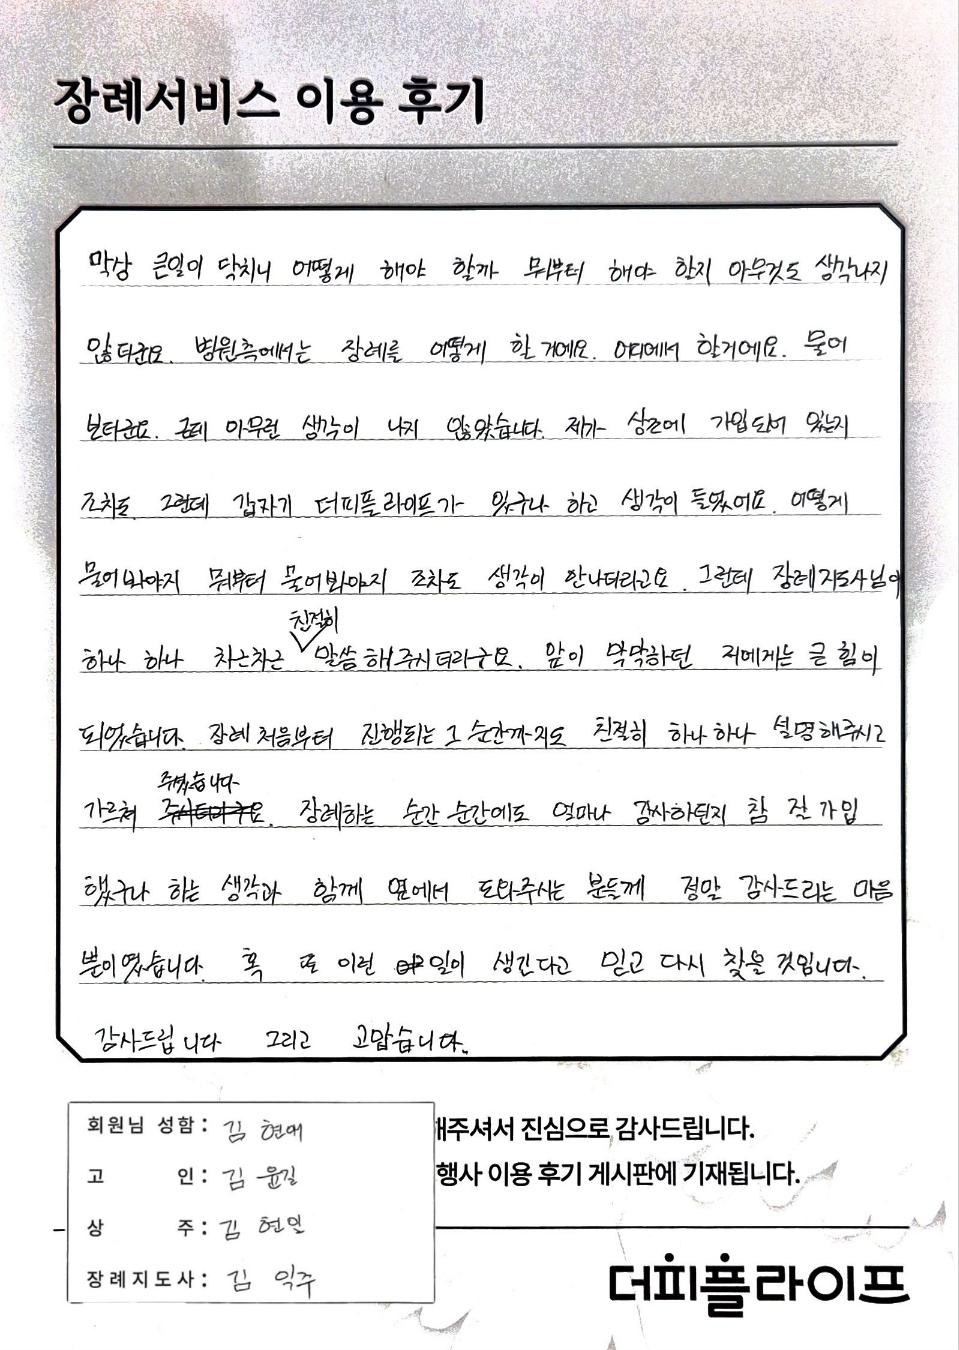 장례서비스 이용 후기
막상 큰일이 닥치니 어떻게 해야 할까 뭐부터 해야 할지 아무것도 생각나지
않더군요. 병원측에서는 장례를 어떻게 할 거에요. 어디에서 할거에요. 물어
보더군요. 근데 아무런 생각이 나지 않았습니다. 제가 상조에 가입되어 있는지
조차도. 그런데 갑자기 더피플라이프가 있구나 하고 생각이 들었어요. 어떻게
물어봐야지 뭐부터 물어봐야지 조차도 생각이 안나더라고요. 그런데 장례지도사님이
친절히
하나 하나 차근차근 말씀해주시더라구요. 앞이 막막하던 저에게는 큰 힘이
되었습니다. 장례 처음부터 진행되는 그 순간까지도 친절히 하나하나 설명해주시고
주셨습니다
가르쳐 주시더라구요. 장례하는 순간 순간에도 얼마나 감사하던지 참 잘 가입
했구나 하는 생각과 함께 옆에서 도와주시는 분들께 정말 감사드리는 마음
뿐이였습니다. 혹 또 이런 일이 생긴다고 믿고 다시 찾을 것입니다.
감사드립니다 그리고 고맙습니다.
회원님 성함: 김현애
고 인: 김윤길
상 주: 김현일
장례지도사: 김익주
해주셔서 진심으로 감사드립니다.
행사 이용 후기 게시판에 기재됩니다.
더피플라이프